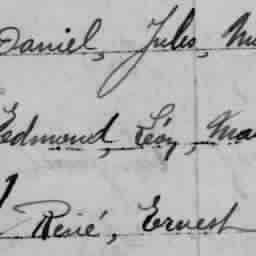 Daniel, Jules,
Edmond, Léon, Ma
René, Ernest